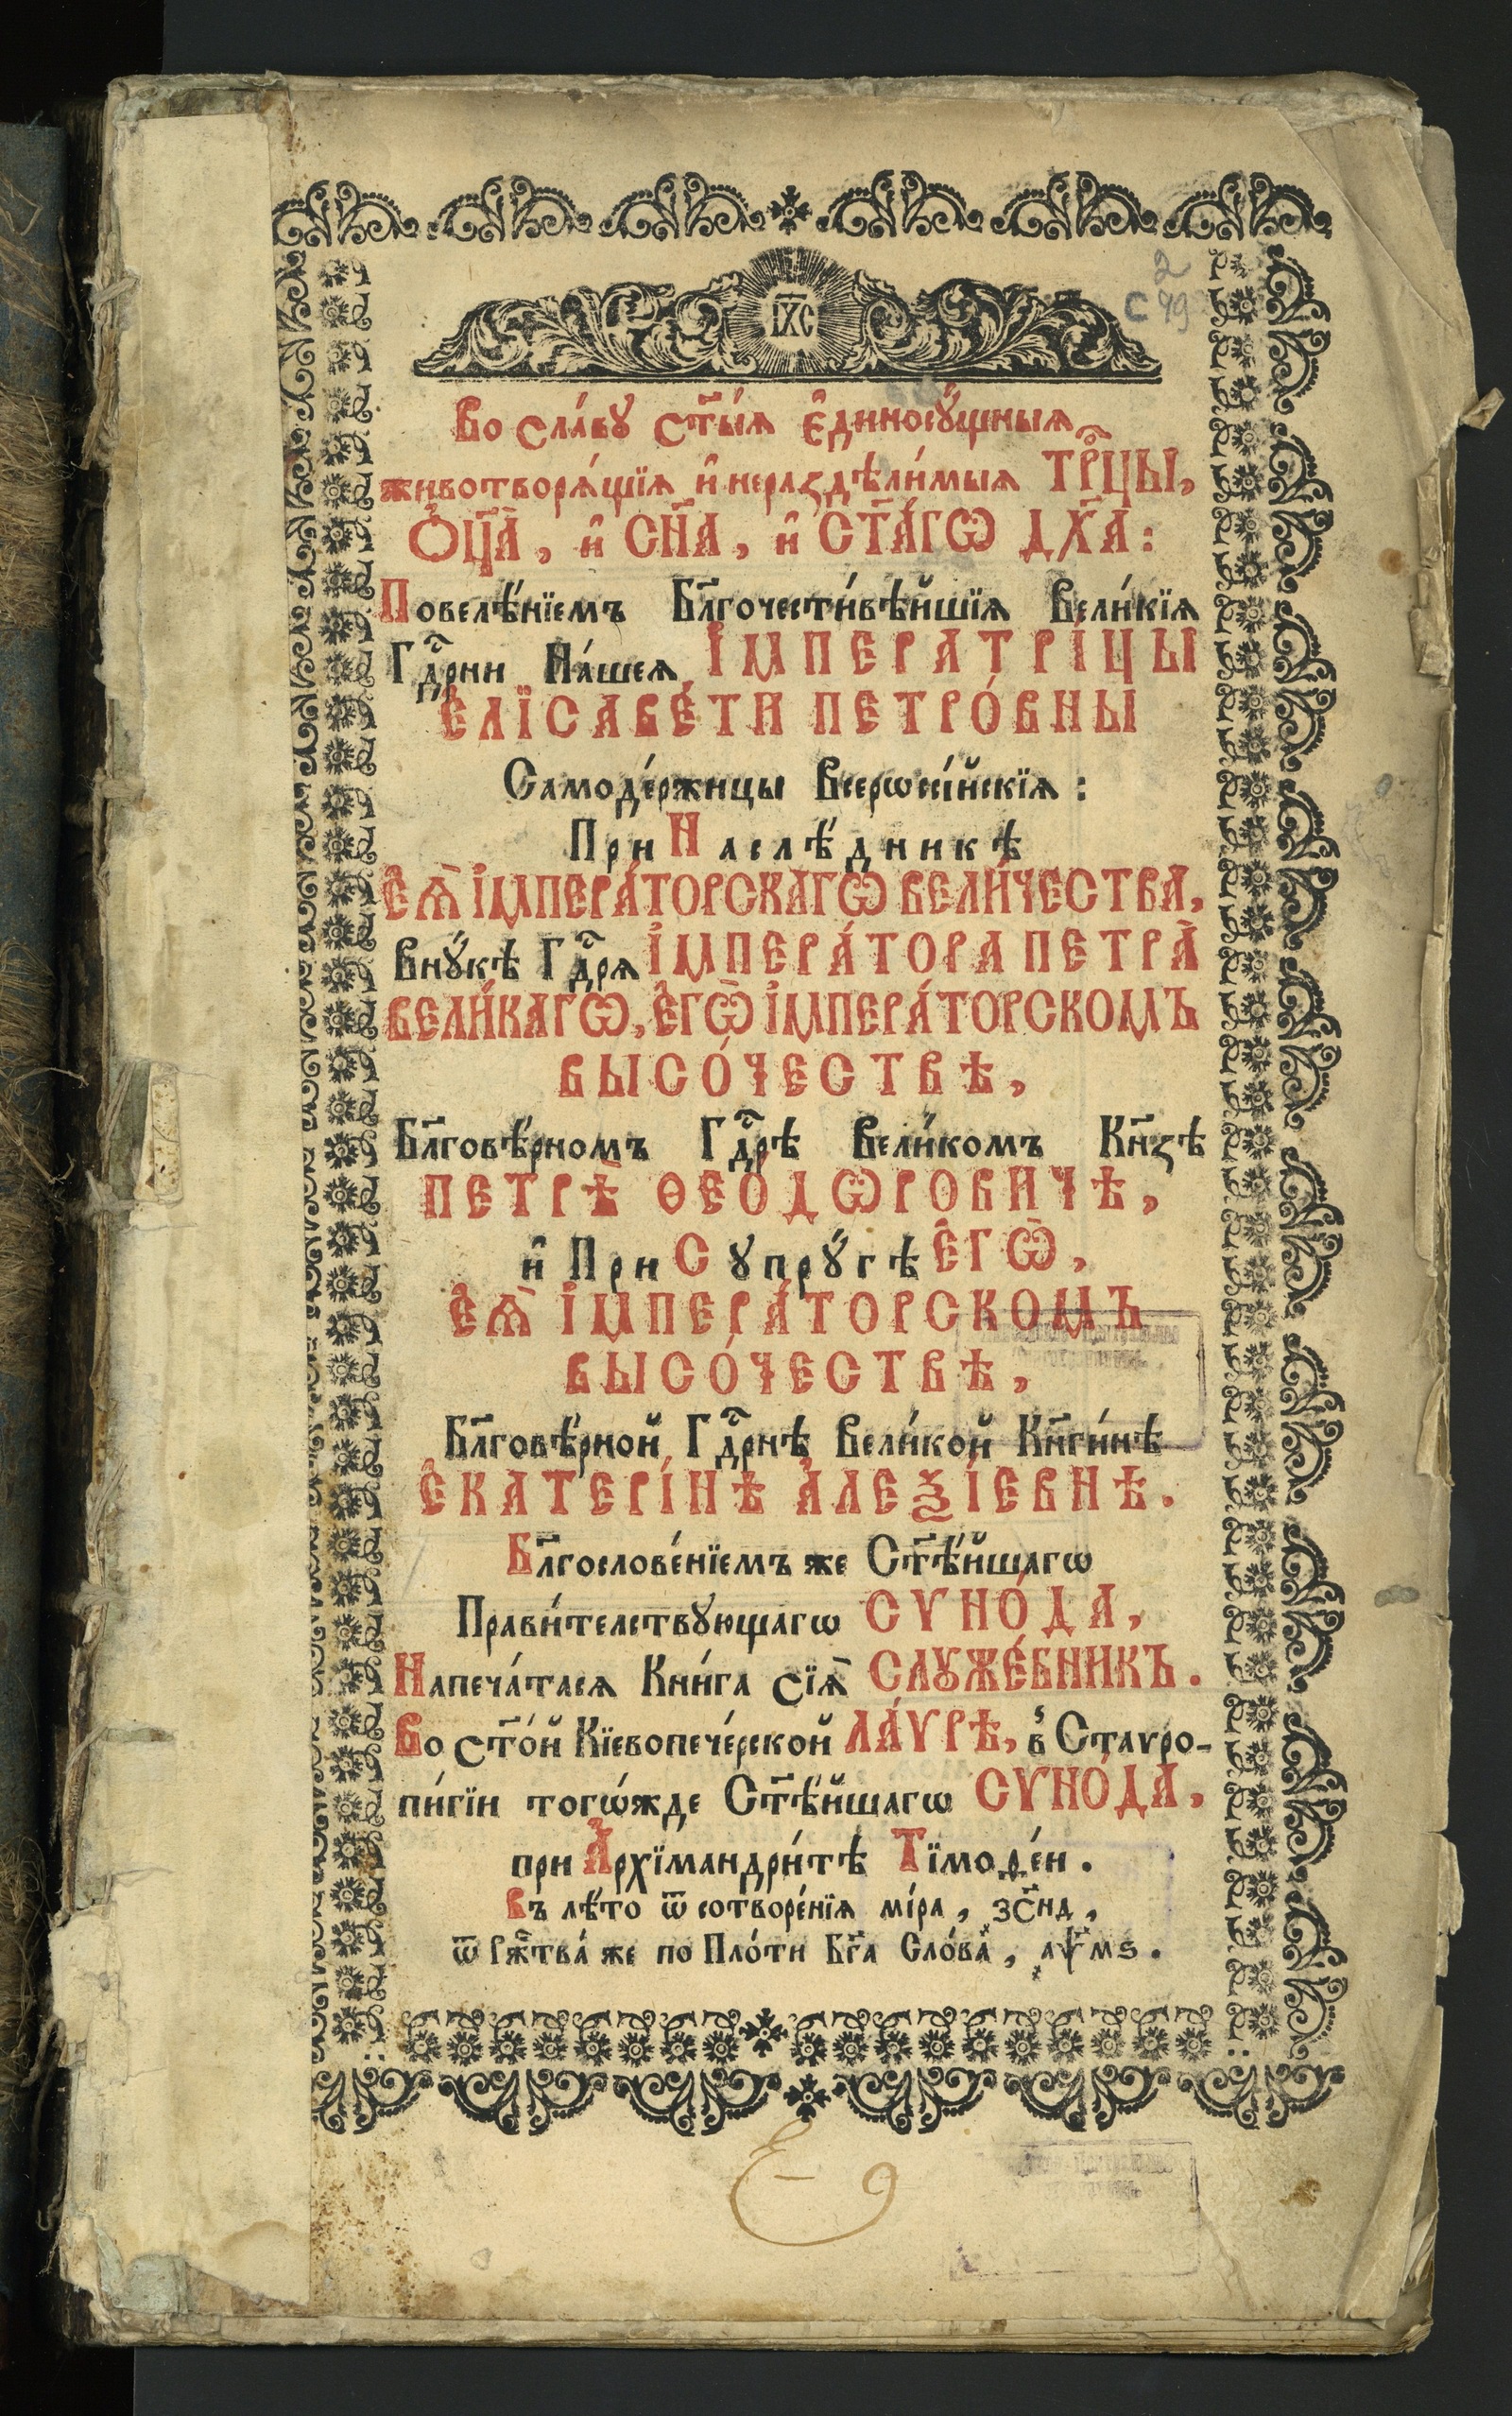 ІХ҃С
2
С 49
Во сла́вꙋ ст҃ы́ѧ є҆диносꙋ́щныѧ
животворѧ́щїѧ и҆ нераздѣли́мыѧ ТРⷪ҇ЦЫ,
Ѻ҆Ц҃А̀, и҆ СН҃А, и҆ СТ҃А́ГѠ ДХ҃А:
Повелѣ́нїемъ Бл҃гочести́вѣйшїѧ Вели́кїѧ
Гдⷭ҇рни На́шеѧ, І҆МПЕРАТРІ́ЦЫ
Є҆ЛЇСАВЕ́ТИ ПЕТРО́ВНЫ
Самоде́ржицы Всерѡссі́йскїѧ:
При Наслѣ́дникѣ
Є҆Ѧ̀ І҆МПЕРА́ТОРСКАГѠ ВЕЛИ́ЧЕСТВА,
Внꙋ́кѣ Гдⷭ҇рѧ І҆МПЕРА́ТОРА ПЕТРА̀
ВЕЛИ́КАГѠ, Є҆ГѠ̀ І҆МПЕРА́ТОРСКОМЪ
ВЫСО́ЧЕСТВѢ,
Бл҃говѣ́рномъ Гдⷭ҇рѣ Вели́комъ Кн҃зѣ
ПЕТРѢ̀ ѲЕО́ДѠРОВИЧѢ,
и҆ При Сꙋпрꙋ́гѣ Є҆ГѠ̀,
Є҆Ѧ̀ І҆МПЕРА́ТОРСКОМЪ
ВЫСО́ЧЕСТВѢ,
Бл҃говѣ́рной Гдⷭ҇рнѣ Вели́кой Кн҃ги́нѣ
Є҆КАТЕРІ́НѢ А҆ЛЕѮІ́ЕВНѢ.
Бл҃гослове́нїемъ же Ст҃ѣ́йшагѡ
Прави́телствꙋющагѡ СѴНО́ДА,
Напеча́тасѧ Кни́га сїѧ̀ СЛꙊЖЕ́БНИКЪ.
Во ст҃о́й Кїевопече́рской ЛА́ѴРѢ, в̾ Ставро-
пи́гїи тогѡ́жде Ст҃ѣ́йшагѡ СѴНО́ДА,
при А҆рхїмандри́тѣ Тїмоѳе́и.
Въ лѣ́то ѿ сотворе́нїѧ мі́ра, ҂зс҃нд,
ѿ Рж҃тва́ же по Пло́ти Бг҃а Сло́ва, ҂аѱ҃мѕ.